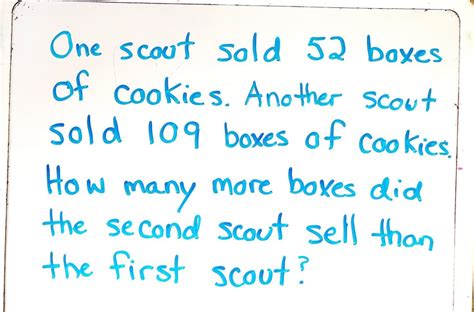 One scout sold 52 boxes
of cookies. Another scout
sold 109 boxes of cookies.
How many more boxes did
the second scout sell than
the first scout?